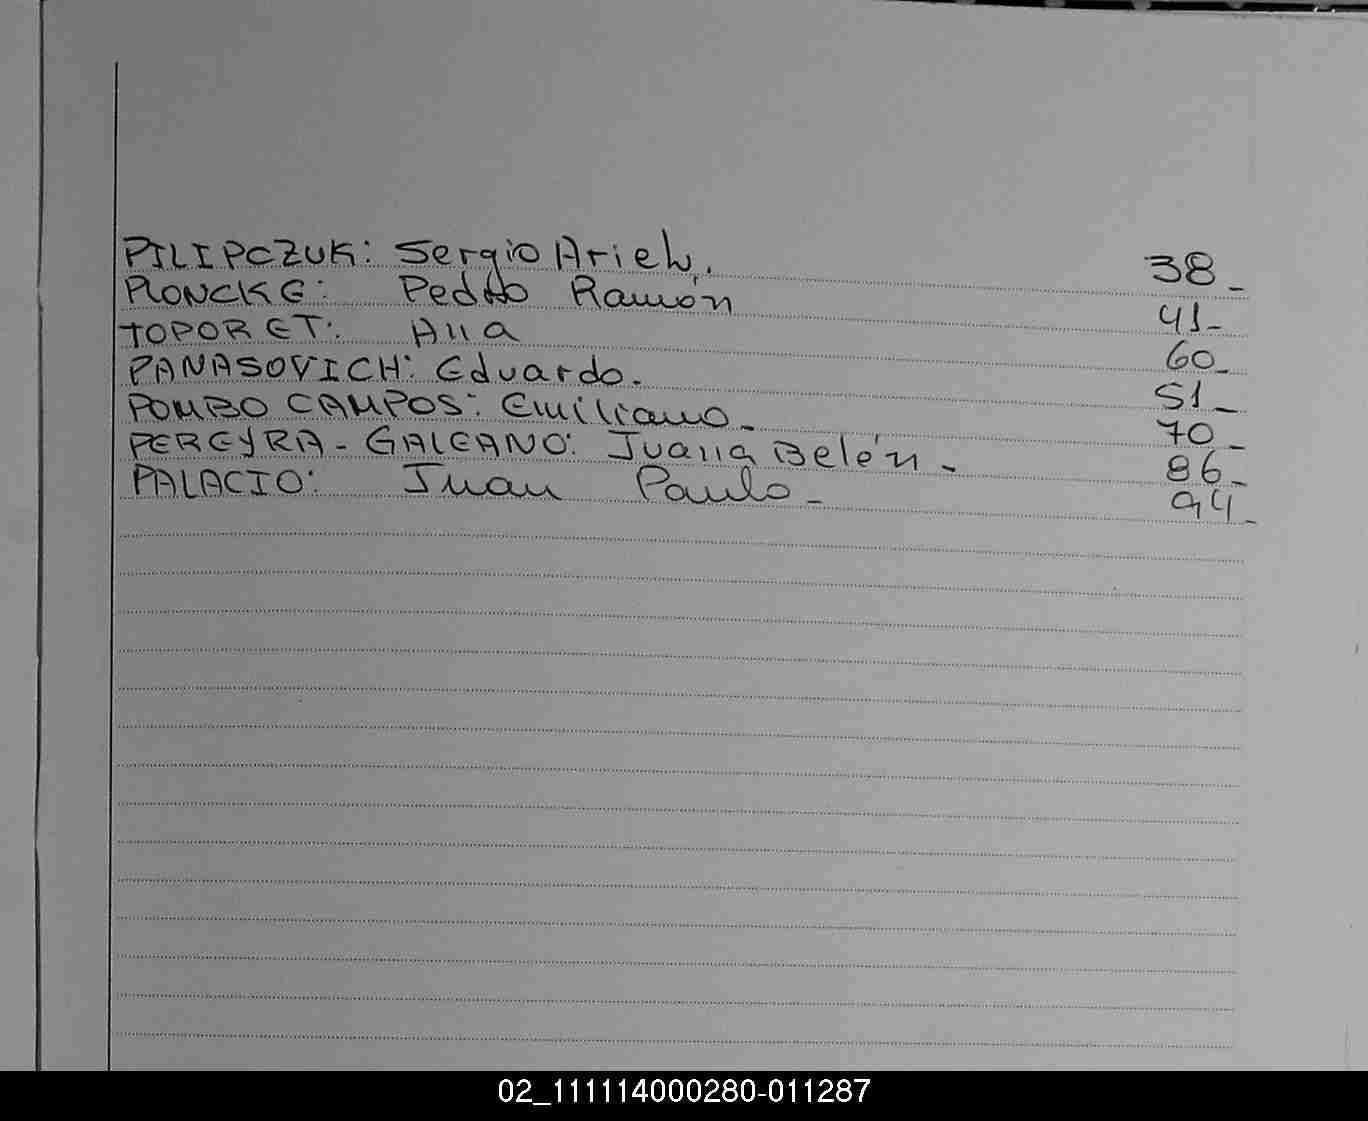 PILIPCZUK: Sergio Ariel. 38_
PLONCKE: Pedro Ramón 41_
TOPORET: Ana 60_
PANASOVICH: Eduardo. 51_
POMBO CAMPOS: Emiliano_ 70_
PEREYRA-GALEANO: Juana Belén_ 86_
PALACIO: Juan Paulo_ 94_
02_111114000280-011287